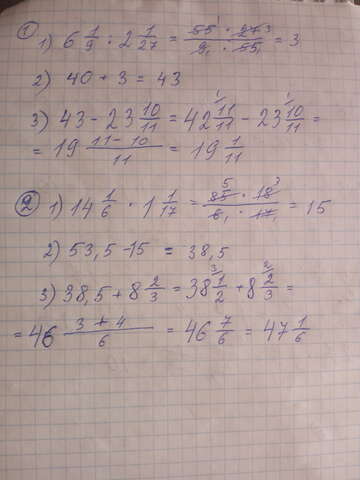 ① 1) 6 1/9 : 2 1/27 = 55 · 27 3 / 9 1 · 55 1 = 3
2) 40 + 3 = 43
3) 43 - 23 10/11 = 42 11/11 - 23 10/11 =
= 19 11 - 10 / 11 = 19 1/11
② 1) 14 1/6 · 1 1/17 = 85 5 · 18 3 / 6 1 · 17 1 = 15
2) 53,5 - 15 = 38,5
3) 38,5 + 8 2/3 = 38 3 1/2 + 8 2 2/3 =
= 46 3 + 4 / 6 = 46 7/6 = 47 1/6